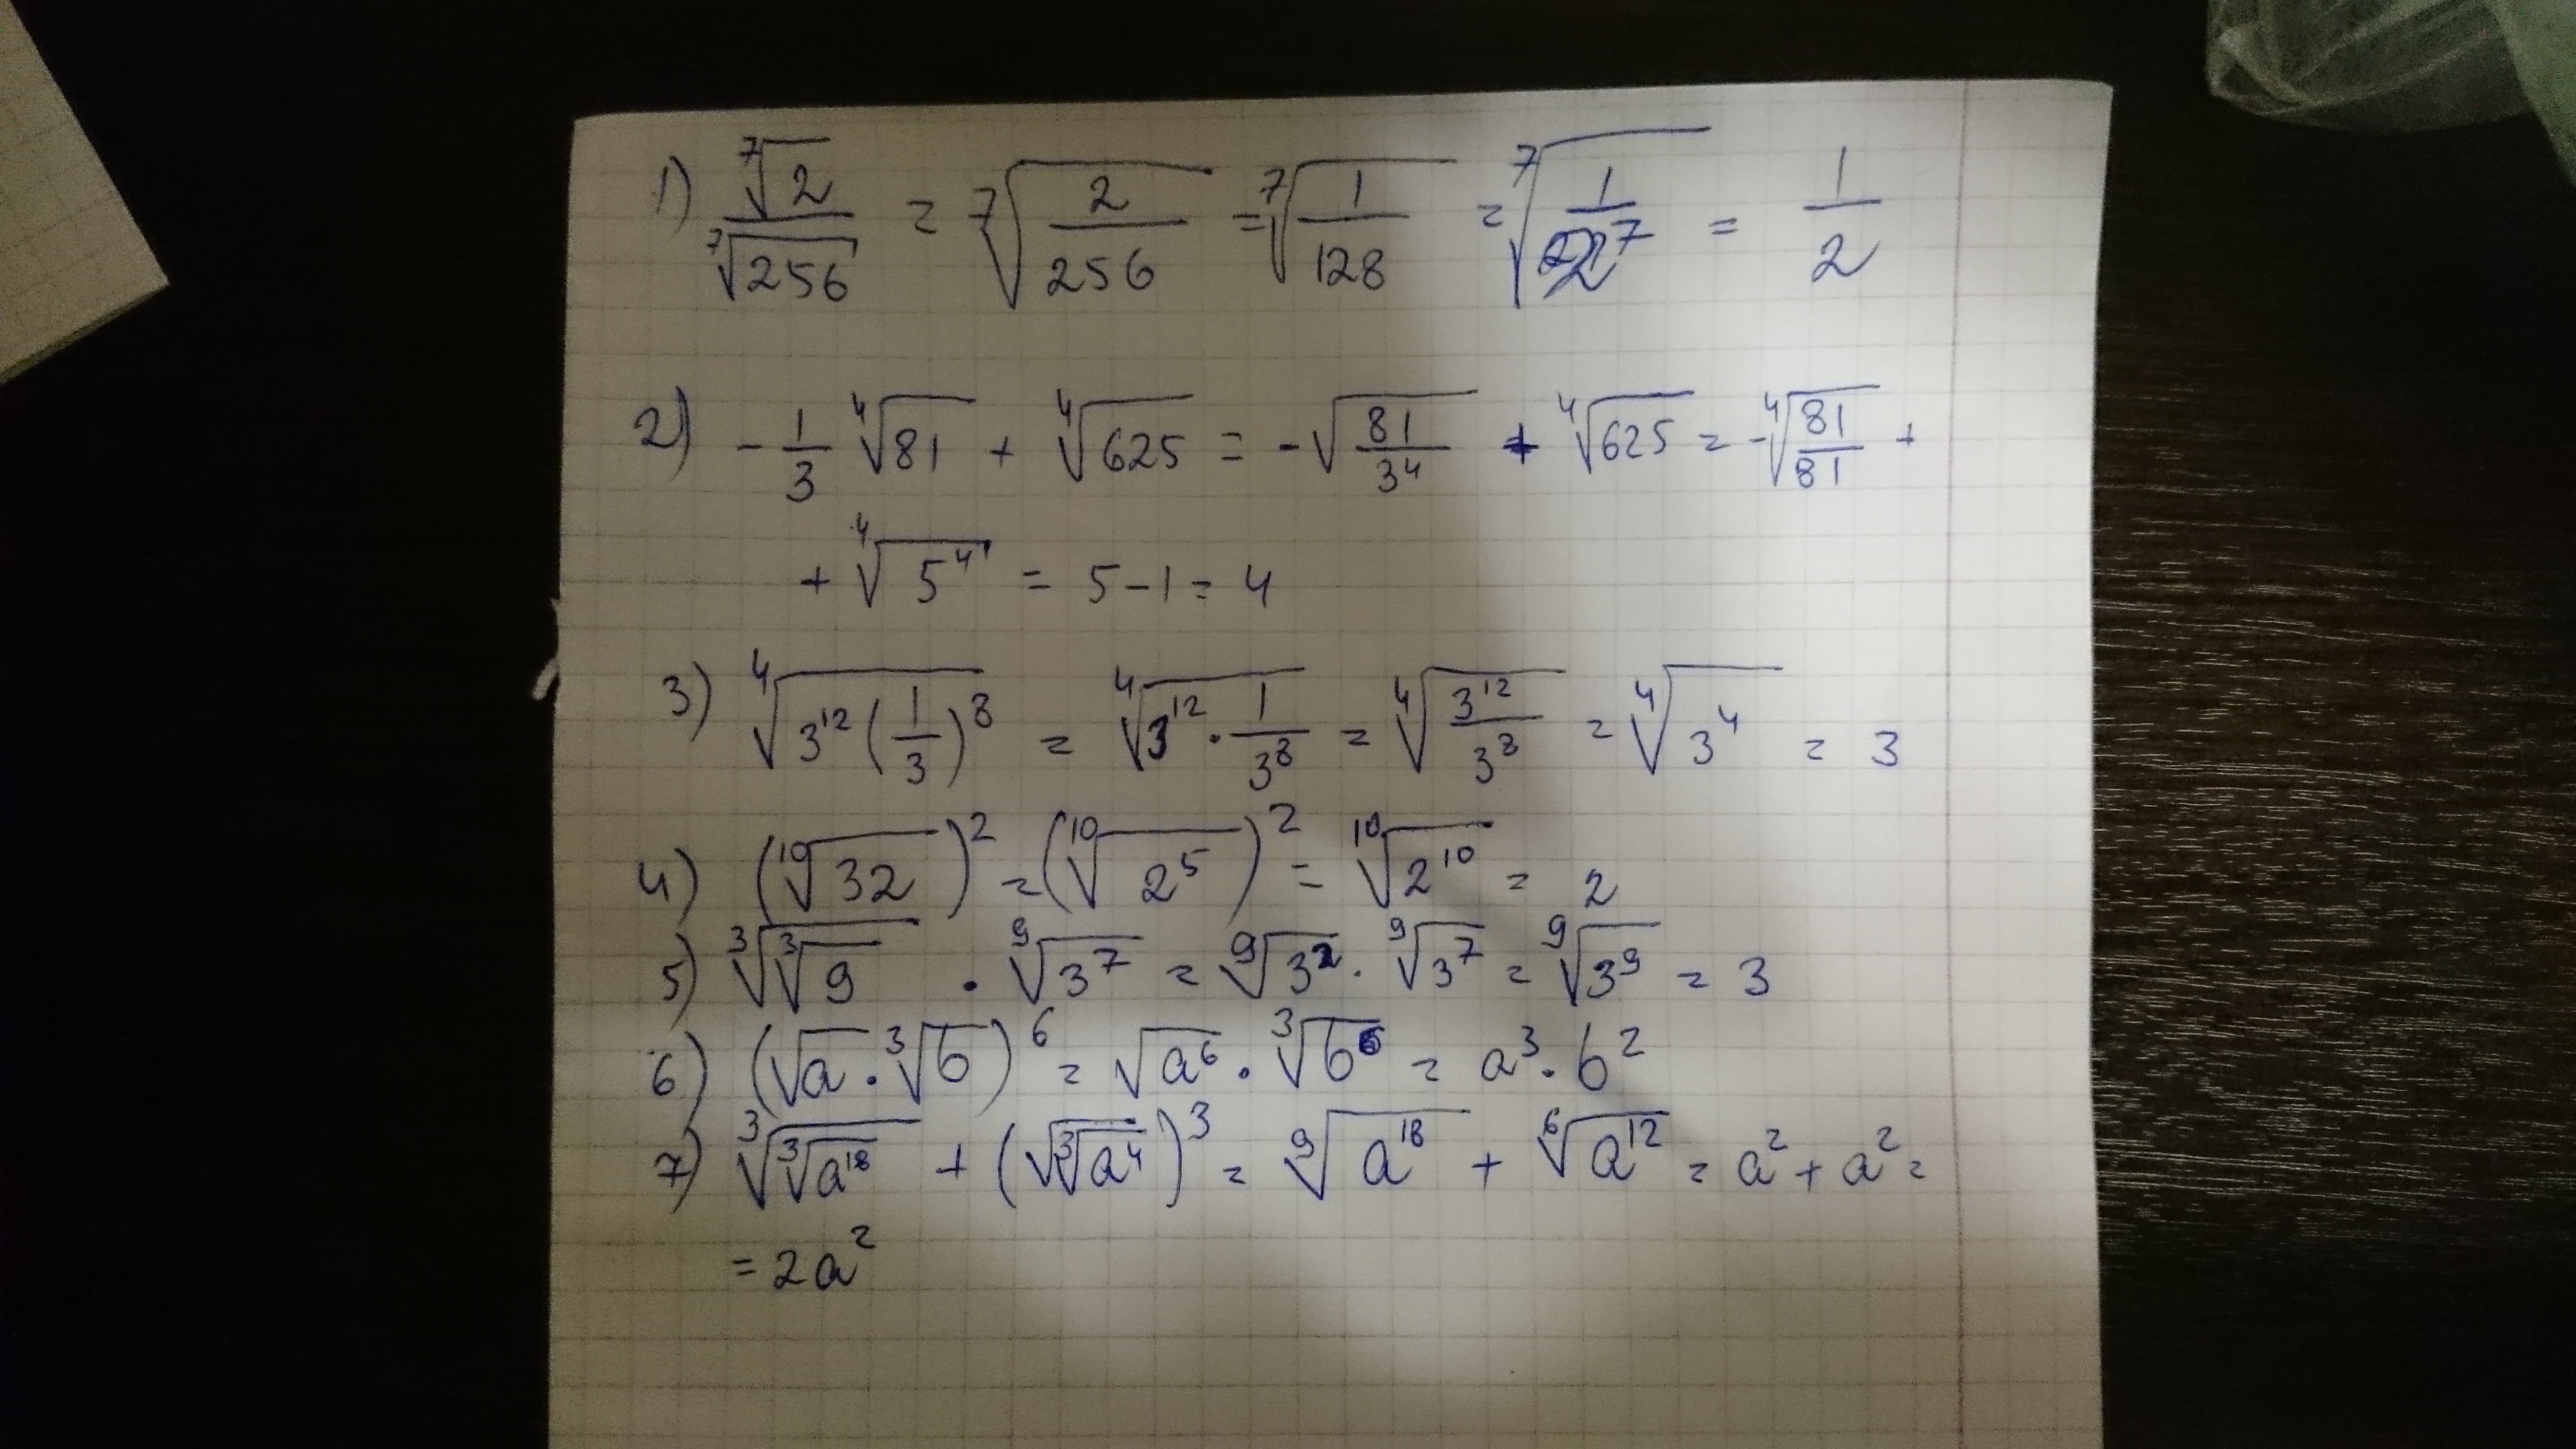 1) ⁷√2 / ⁷√256 = ⁷√(2/256) = ⁷√(1/128) = ⁷√(1/2⁷) = 1/2
2) -1/3 ⁴√81 + ⁴√625 = -√(81/3⁴) + ⁴√625 = -⁴√(81/81) +
+ ⁴√(5⁴) = 5-1 = 4
3) ⁴√(3¹²(1/3)⁸) = ⁴√(3¹²·1/3⁸) = ⁴√(3¹²/3⁸) = ⁴√(3⁴) = 3
4) (¹⁰√32)² = (¹⁰√(2⁵))² = ¹⁰√(2¹⁰) = 2
5) ³√(³√9) · ⁹√(3⁷) = ⁹√(3²) · ⁹√(3⁷) = ⁹√(3⁹) = 3
6) (√a · ³√b)⁶ = √(a⁶) · ³√(b⁶) = a³ · b²
7) ³√(³√(a¹⁸)) + (√(³√(a⁴)))³ = ⁹√(a¹⁸) + ⁶√(a¹²) = a² + a² =
= 2a²